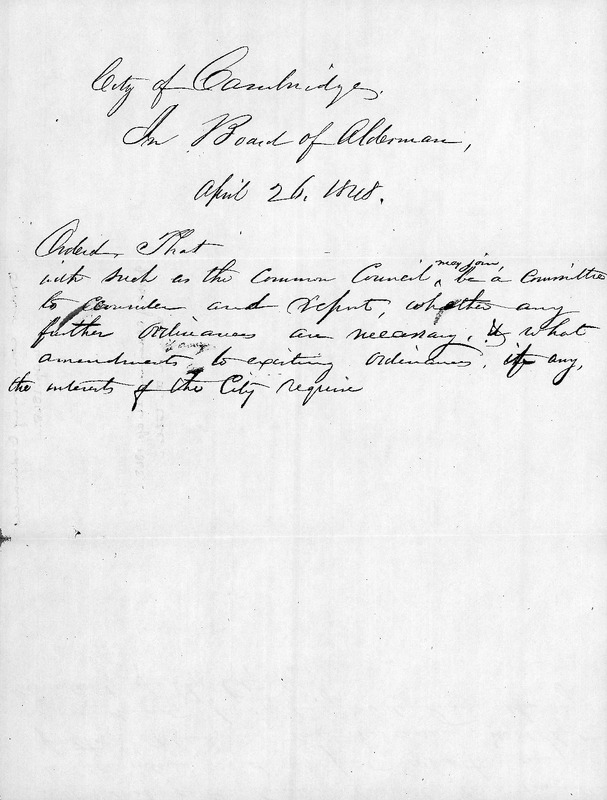 City of Cambridge.
In Board of Alderman,
April 26, 1848.
Ordered, That
with such as the Common Council may join, be a Committee
to consider and report, whether any
further ordinances are necessary, & what
amendments to existing ordinances, if any,
the interests of the City require